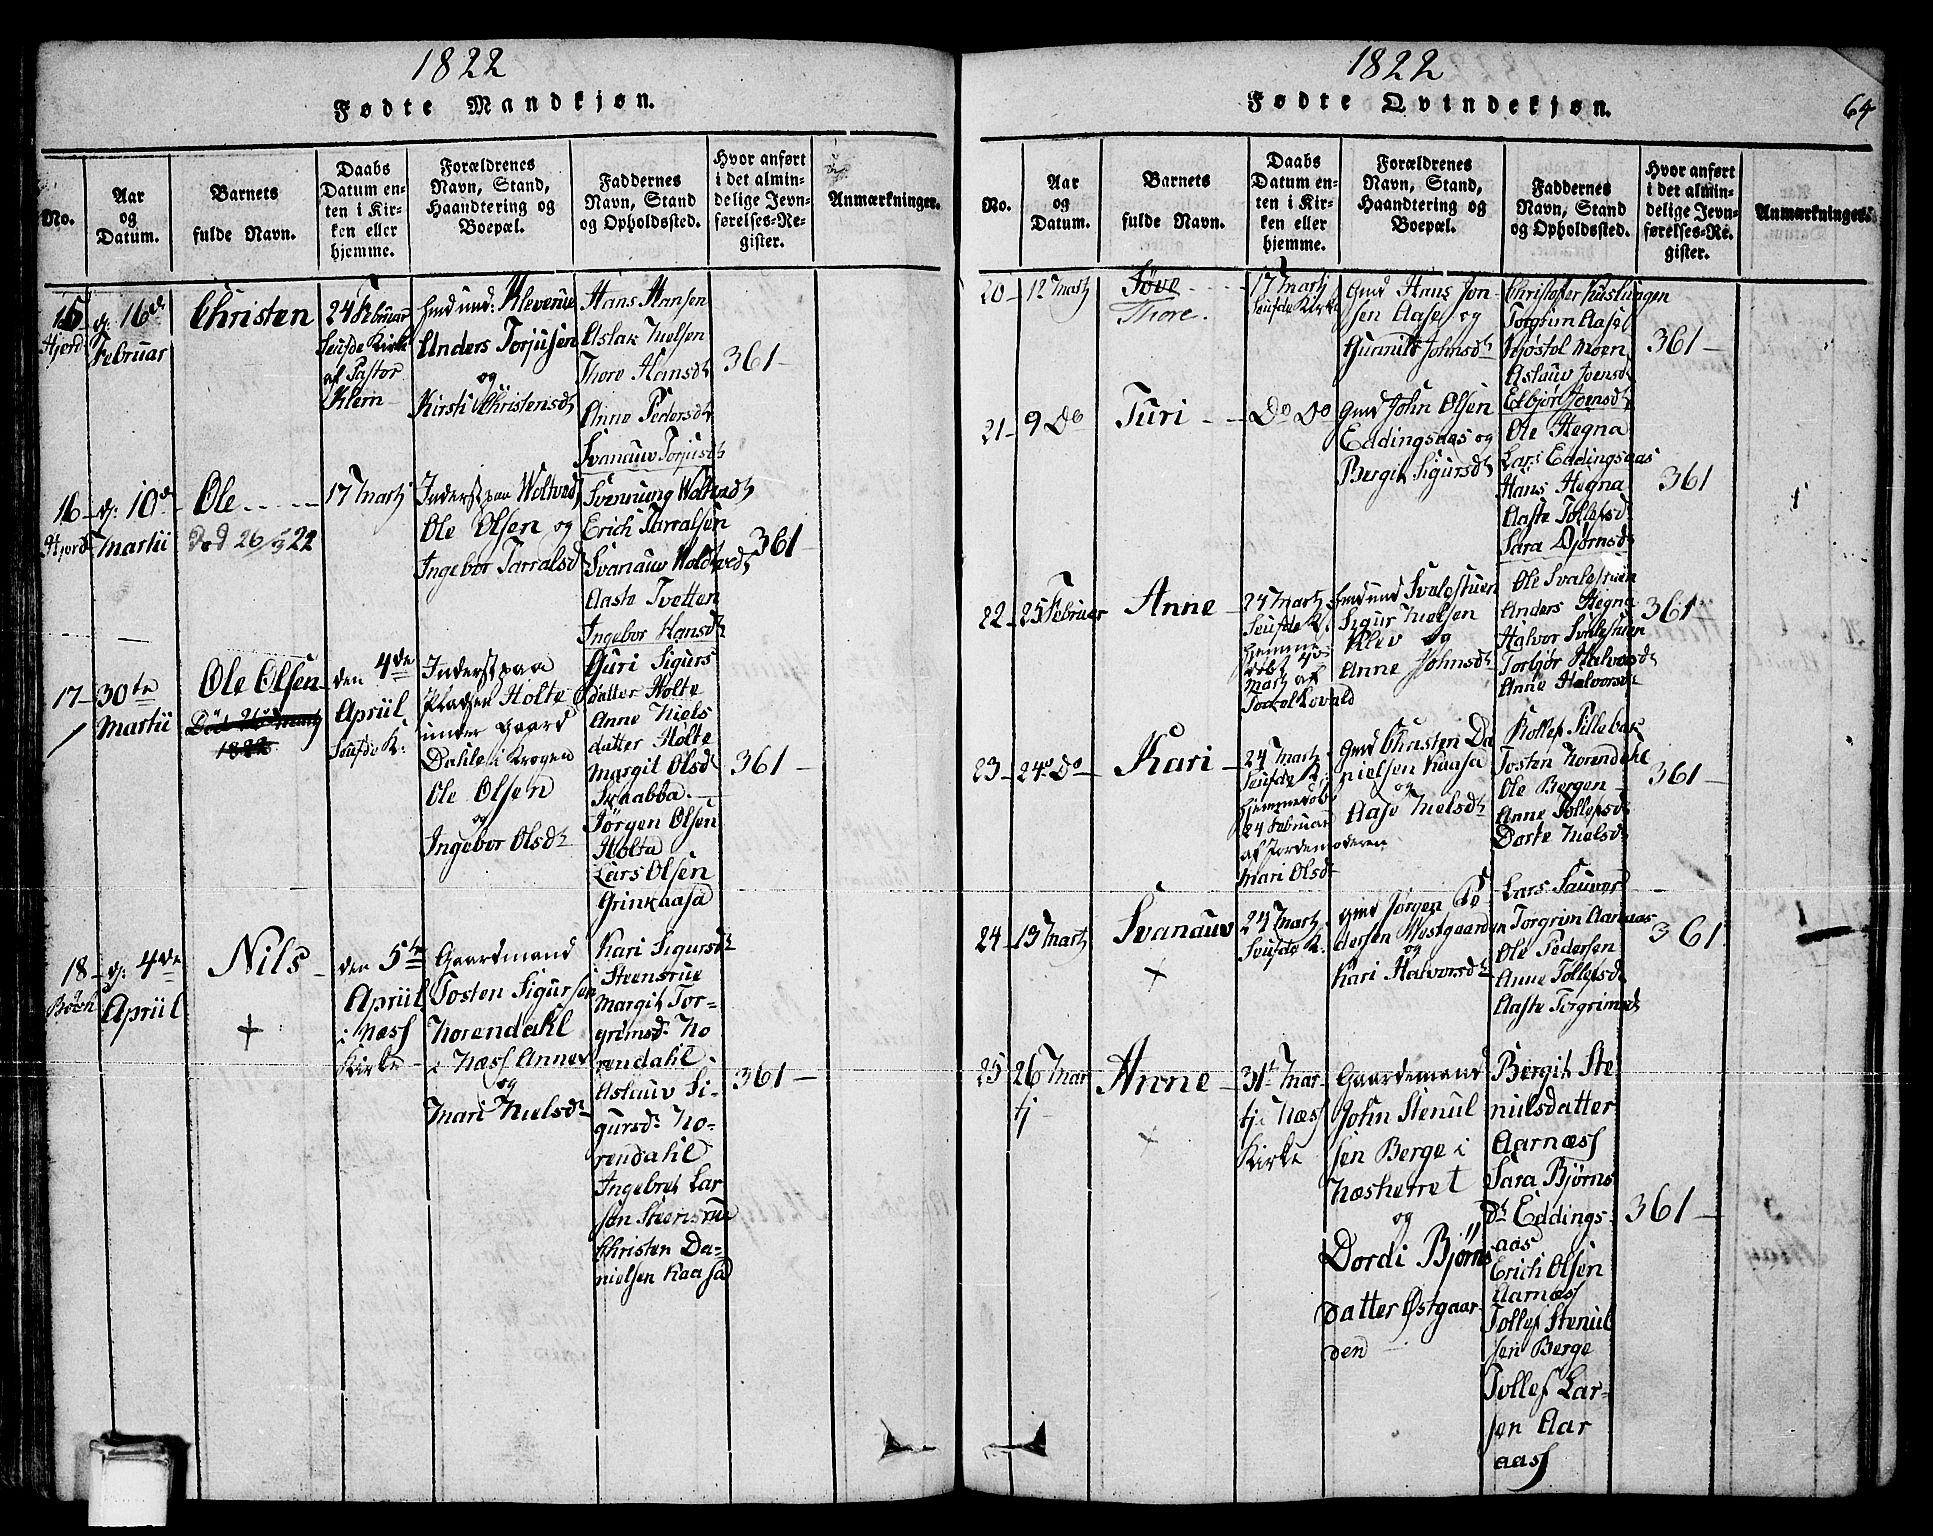 1822
Fødte Mandkjøn.
No.
Aar
og
Datum.
Barnets
fulde Navn.
Daabs
Datum en-
ten i Kir-
ken eller
hjemme.
Forældrenes
Navn, Stand,
Haandtering og
Boepæl.
Faddernes
Navn, Stand
og Opholdssted.
Hvor anført
i det almin-
delige Jevn-
førelses-Re-
gister.
Anmærkninger.
15
Hjerd
d: 16de
Februar
Christen
24 Februar
Seufde Kirke
af Pastor
Klem
Gmd und: Kleverue
Anders Torjusen
og
Kirsti Christensdt
Hans Hansen
Aslak Nielsen
Thore Hansdt
Anne Pedersdt
Svanauv Torjusdt
361
16
Hjerd
d: 10de
Martii
Ole
Død 26/5 22
17 Martj
Inderst paa Woltved
Ole Olsen og
Ingebor Tarralsd
Svennung Woltvedt
Erich Tarralsen
Svanauv Woldtvedt
Aaste Tvetten
Ingebor Hansdt
361
17
30te
Martii
Ole Olsen
1822
den 4de
Apriil
Seufde K:
Inderst paa
Pladsen Holte
under Gaard
Dahle i Krogen
Ole Olsen
og
Ingebor Olsdt
Guri Sigurs
datter Holte
Anne Niels
datter Holte
Margit Olsdt
Skaabba
Jørgen Olsen
Holta
Lars Olsen
Grinkaasa
361
18
d: 4de
Apriil
Nils
+
den 5te
Apriil
i Næss
Kirke
Gaardmand
Tosten Sigursen
Norendahl
i Næss Annex
og
Mari Nielsdt
Kari Sigursdt
Steensrue
Margit Tor-
grimsd: No
rendahl
Aslauv Si
gursd: No-
rendahl
Ingebret Lar
sen Steensrue
Christen Da-
nielsen Kaasa
361
1822
Fødte Qvindekjøn.
64
No.
Aar
og
Datum.
Barnets
fulde Navn.
Daabs
Datum en-
ten i Kir-
ken eller
hjemme.
Forældrenes
Navn, Stand,
Haandtering og
Boepæl.
Faddernes
Navn, Stand
og Opholdssted.
Hvor anført
i det almin-
delige Jevn-
førelses-Re-
gister.
Anmærkninger.
20
12 Martj
Tøve
Thore.
17 Martj
Seufde Kirke
Gmd Hans Jon-
sen Aase og
Gunnild Johnsdt
Christoffer
Torgrim Aase
Kjøstol Moen
Aslauv Joensdt
Edbjør Joensdt
361
21
9 Do
Turi
Do Do
Gmd John Olsen
Eddingsaas og
Bergit Sigursdt
Ole Hegna
Lars Eddingsaas
Hans Hegna
Aaste Tollefsdt
Sara Bjørnsdt
361
22
25 Februar
Anne
24 Martj
Seufde K.
hjemme
døbt 4de
Martj af
Gmd und Svalestuen
Sigur Nielsen
Klev og
Anne Johnsdt
Ole Svalestuen
Anders Hegna
Halvor Svalestuen
Torbjør Halvorsdt
Anne Halvorsdt
361
23
24 Do
Kari
24 Martj
Seufde K:
hjemmedøbt
24 Februar
af Jordemoderen
Mari Olsdt
Gmd Christen Da
nielsen Kaasa
og
Aase Nielsdt
Kollef Lillebae
Tosten Norendahl
Ole Bergen
Anne Tollefsdt
Dorte Nielsdt
361
24
13 Martj
Svanauv
+
24 Martj
Seufde K.
Gmd Jørgen Pe-
dersen Østgaarden
og
Kari Halvorsdt
Lars Sauver
Torgrim Aarnæs
Ole Pedersen
Anne Tollefsdt
Aaste Torgrimsdt
361
25
26 Mar
tj
Anne
+
31te Mar-
tj i Næss
Kirke
Gaardemand
John Stenul
sen Berge i
Næsherret
og
Dordi Bjørns
datter Østgaar-
den
Bergit Ste
nulsdatter
Aarnæss
Sara Bjørns
dt Eddings-
aas
Erich Olsen
Aarnæss
Tollef Stenul
sen Berge
Tollef Lar-
sen Aar
aass
361